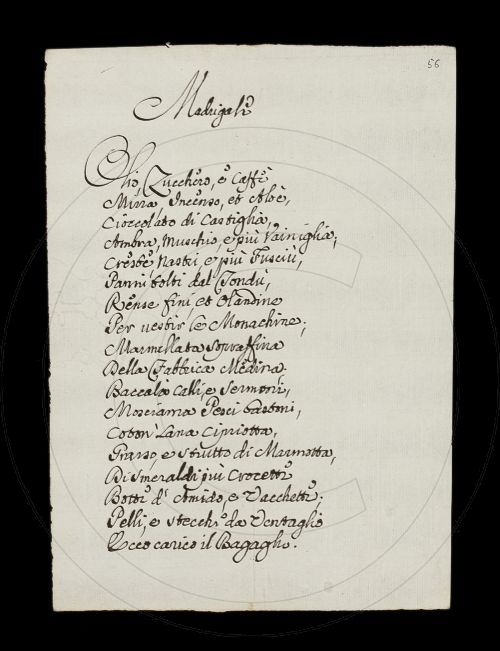 56
Madrigali
Olio, Zucchero, e Caffè
Mirra, Incenso, et Aloè,
Cioccolato di Castiglia,
Ambra, Muschio, e più Vainiglia;
Creste Nastri, e più
Panni tolti dal
Rense fini, et Olandine
Per vestir le Monachine;
Marmellata Sopraffina
Della Fabbrica Medina;
Baccalà e Sermoni,
Mosciama Pesci
Coton Lana Cipriotta,
Grasso, e strutto di Marmotta,
Di Smeraldi più Crocette
Botti d'Amido, e Vacchette;
Pelli, e stecche da Ventaglio
Ecco carico il Bagaglio.